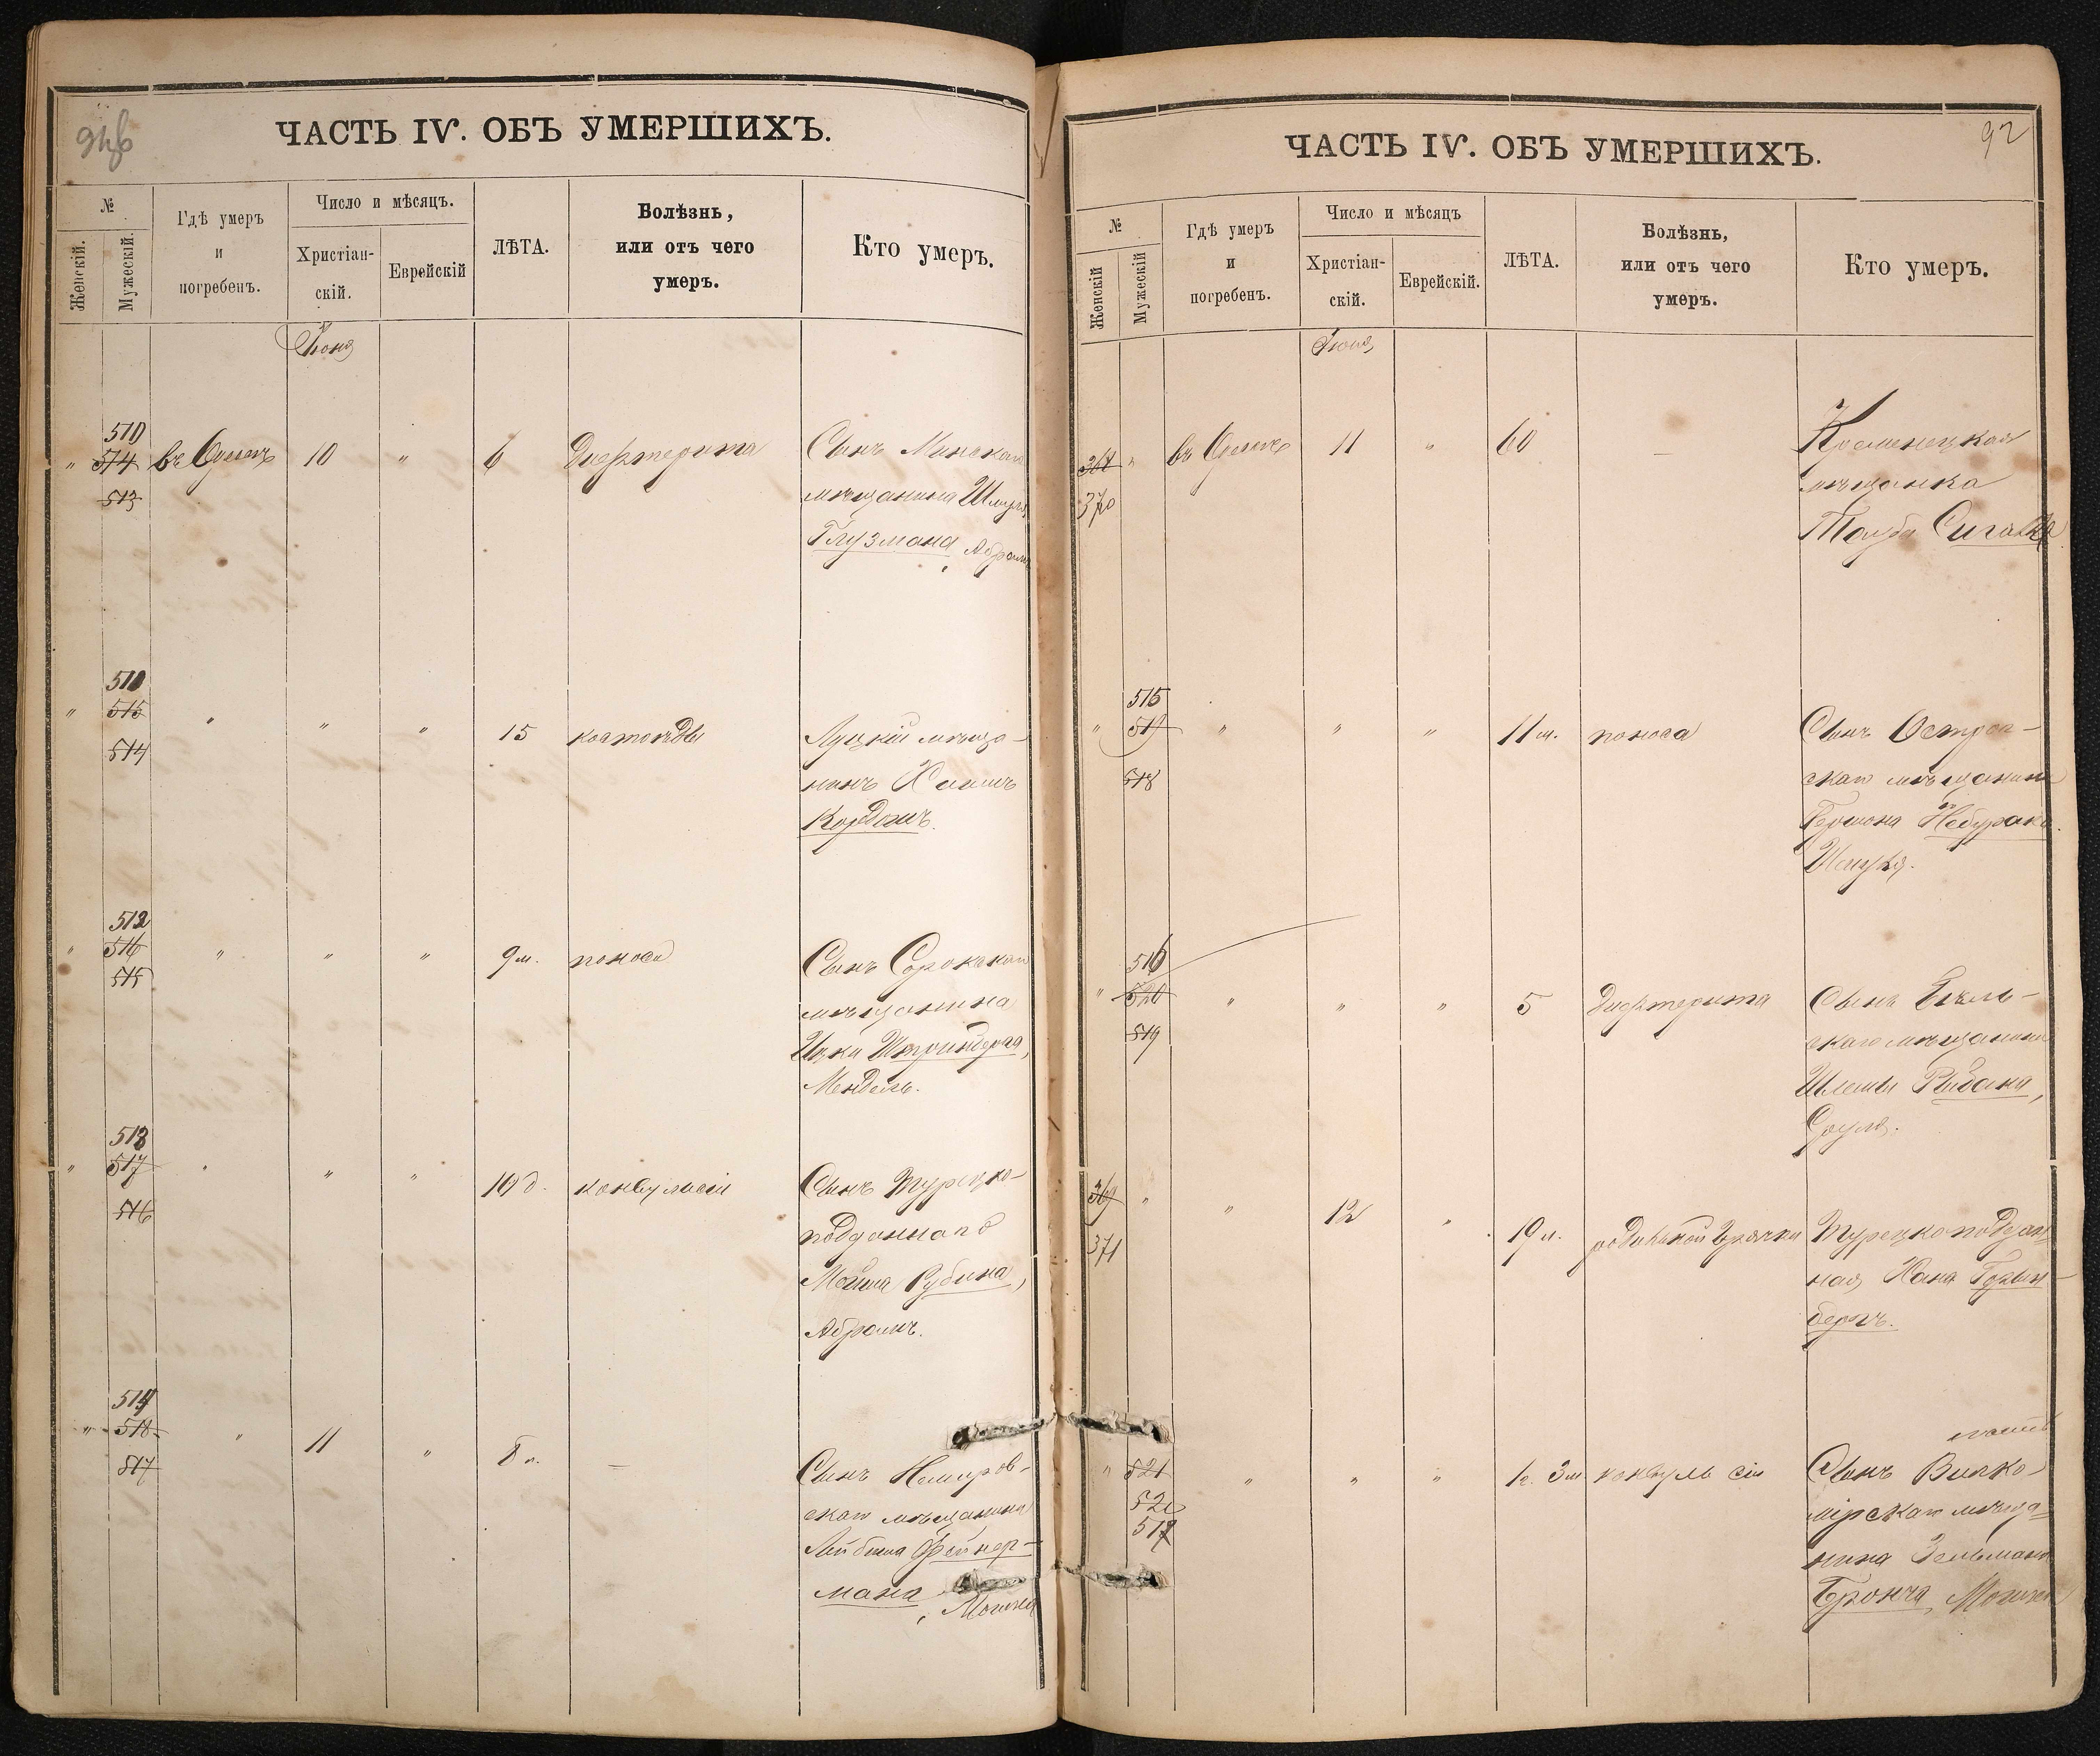 ЧАСТЬ IV. ОБЪ УМЕРШИХЪ.
№
Женскій.
Мужескій.
Гдѣ умеръ
и
погребенъ.
Число и мѣсяцъ.
Христіан-
скій.
Еврейскій
ЛѢТА.
Болѣзнь,
или отъ чего
умеръ.
Кто умеръ.
Іюня
510
" 514 въ Одессѣ 10 " 6 Дифтерита Сынъ Минскаго
513
мѣщанина Шмуля
Глузмана, Абрамъ
511
515
514
" " " " 15 костоѣды Луцкій мѣща-
нинъ Хаимъ
Кордонъ.
512
516
515
" " " " 9 м. поноса Сынъ Сорокскаго
мѣщанина
Ицки Штринберга,
Мендель.
513
517
516
" " " " 10 д. конвульсіи Сынъ Турецко-
подданнаго
Мошка Рубина,
Абрамъ.
514
518
517
" " 11 " 8 м. — Сынъ Немиров-
скаго мѣщанина
Лейбыша Фейнер-
мана, Мошка
ЧАСТЬ IV. ОБЪ УМЕРШИХЪ.
92
№
Женскій
Мужескій
Гдѣ умеръ
и
погребенъ.
Число и мѣсяцъ
Христіан-
скій.
Еврейскій.
ЛѢТА.
Болѣзнь,
или отъ чего
умеръ.
Кто умеръ.
Іюня
370
" въ Одессѣ 11 " 60 — Кременецкая
мѣщанка
Тауба Сигалъ
515
519
518
" " " " 11 м. поноса Сынъ Острог-
скаго мѣщанина
516
520
519
" " " " 5 Дифтерита Сынъ
скаго мѣщанина
Шлемы Рыбака,
Сруль.
369
371
" " 12 " 19 л. родильной горячки Турецкоподдан-
ная Хана
бергъ.
521
520
517
" " " " 1 г. 3 м. конвульсіи Сынъ Вилко-
мірскаго мѣща-
нина Зельмана
Бронча, Мошка